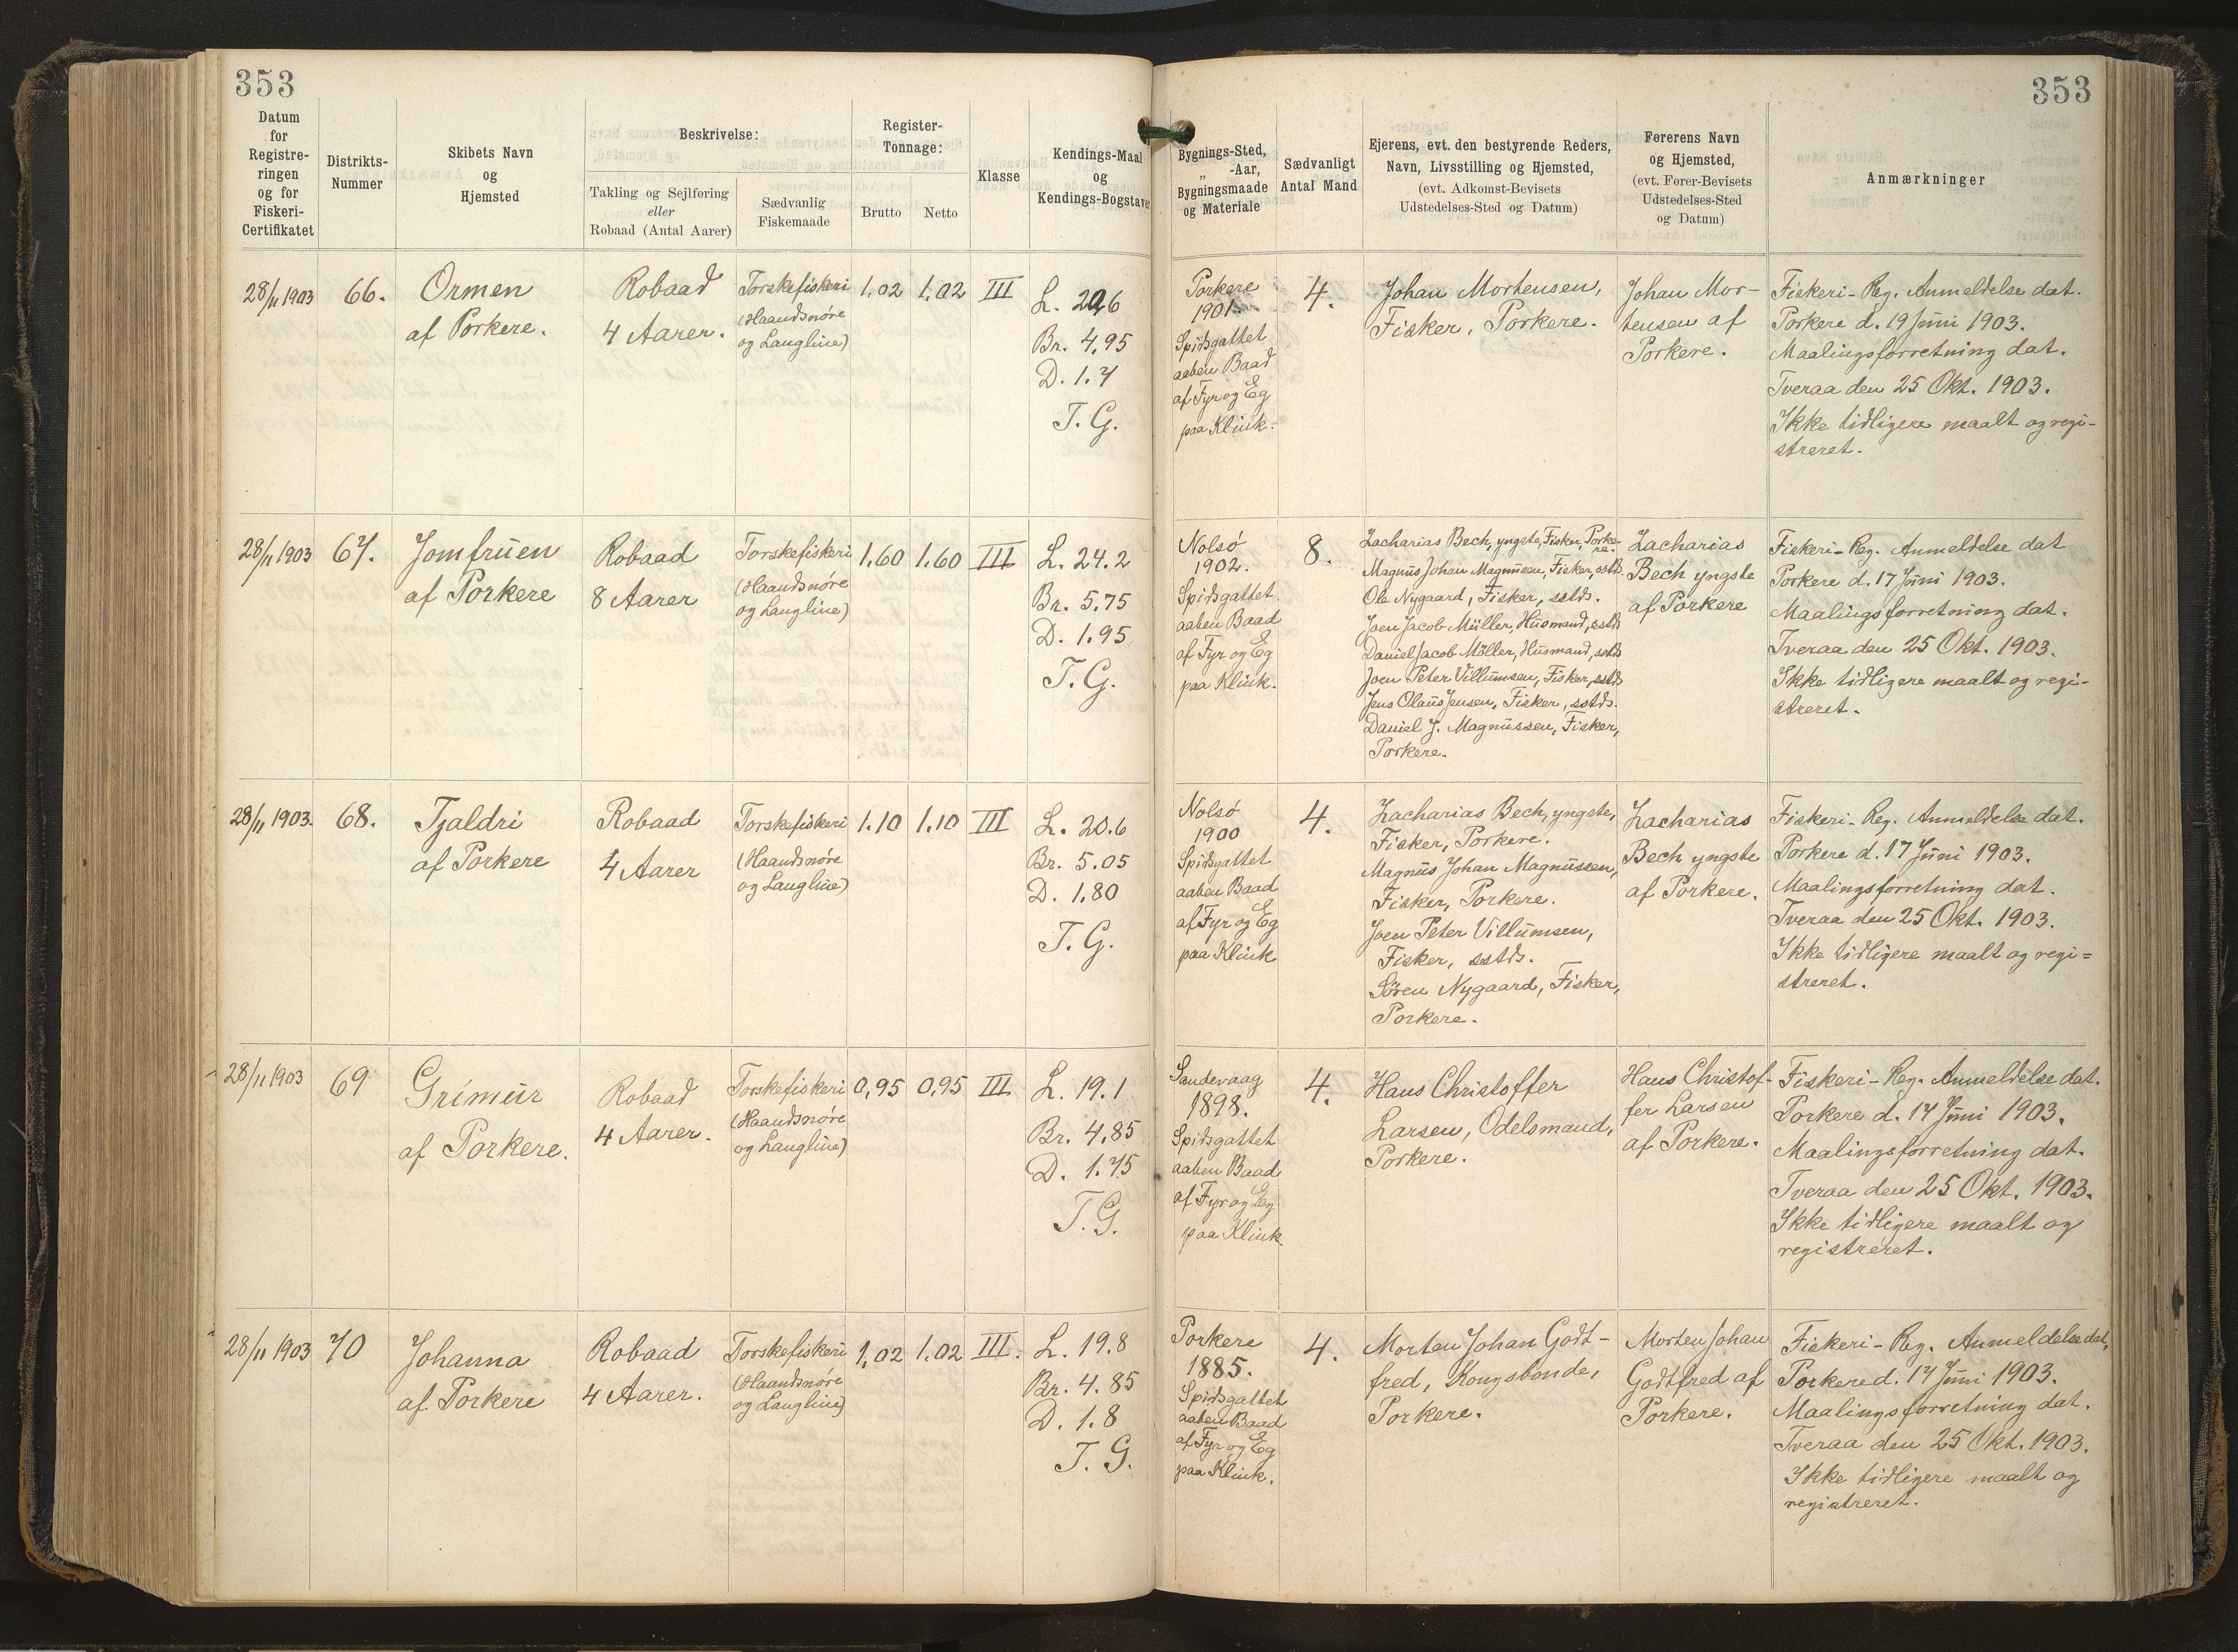 353
353
Datum
for
Registre-
ringen
og for
Fiskeri-
Certifikatet
Distrikts-
Nummer
Skibets Navn
og
Hjemsted
Beskrivelse:
Takling og Sejlføring
eller
Robaad (Antal Aarer)
Sædvanlig
Fiskemaade
Register-
Tonnage:
Brutto
Netto
Klasse
Kendings-Maal
og
Kendings-Bogstaver
Bygnings-Sted,
„ -Aar,
Bygningsmaade
og Materiale
Sædvanligt
Antal Mand
Ejerens, evt. den bestyrende Reders,
Navn, Livsstilling og Hjemsted,
(evt. Adkomst-Bevisets
Udstedelses-Sted og Datum)
Førerens Navn
og Hjemsted,
(evt. Fører-Bevisets
Udstedelses-Sted
og Datum)
Anmærkninger
28/11 1903
66.
Ormen
af Porkere.
Robaad
4 Aarer.
Torskefiskeri
(Haandsnøre
og Langline)
1,02
1,02
III
L. 20,6
Br. 4,95
D. 1.7
T. G.
Porkere
1901.
Spidsgattet
aaben Baad
af Fyr og Eg
paa Klink.
4.
Johan Mortensen,
Fisker, Porkere.
Johan Mor-
tensen af
Porkere.
Fiskeri-Reg. Anmeldelse dat.
Porkere d. 19 Juni 1903.
Maalingsforretning dat.
Tveraa den 25 Okt. 1903.
Ikke tidligere maalt og regi-
streret.
28/11 1903
67.
Jomfruen
af Porkere
Robaad
8 Aarer
Torskefiskeri
(Haandsnøre
og Langline)
1.60
1.60
III
L. 24.2
Br. 5.75
D. 1.95
T. G.
Nolsö
1902.
Spidsgattet
aaben Baad
af Fyr og Eg
paa Klink.
8.
Zacharias Bech, yngste, Fisker, Porke-
re.
Magnus Johan Magnussen, Fisker, sstds.
Ole Nygaard, Fisker, sstds.
Joen Jacob Müller, Husmand, sstds
Daniel Jacob Möller, Husmand, sstds
Joen Peter Villumsen, Fisker, sstds
Jens Olaus Jensen, Fisker, sstds.
Daniel J. Magnussen, Fisker,
Porkere.
Zacharias
Bech yngste
af Porkere
Fiskeri-Reg. Anmeldelse dat
Porkere d. 17 Juni 1903.
Maalingsforretning dat.
Tveraa den 25 Okt. 1903.
Ikke tidligere maalt og regi-
streret.
28/11 1903.
68.
Tjaldri
af Porkere
Robaad
4 Aarer
Torskefiskeri
(Haandsnøre
og Langline)
1.10
1.10
III
L. 20.6
Br. 5.05
D. 1.80
T. G.
Nolsö
1900
Spidsgattet
aaben Baad
af Fyr og Eg
paa Klink
4.
Zacharias Bech, yngste,
Fisker, Porkere.
Magnus Johan Magnussen,
Fisker, Porkere.
Joen Peter Villumsen,
Fisker, sstds.
Sören Nygaard, Fisker,
Porkere.
Zacharias
Bech yngste
af Porkere.
Fiskeri-Reg. Anmeldelse dat.
Porkere d. 17 Juni 1903.
Maalingsforretning dat.
Tveraa den 25 Okt. 1903.
Ikke tidligere maalt og regi=
streret.
28/11 1903
69
Grimur
af Porkere.
Robaad
4 Aarer.
Torskefiskeri
(Haandsnøre
og Langline)
0,95
0,95
III
L. 19.1
Br. 4,85
D. 1.75
T. G.
Sandevaag
1898.
Spidsgattet
aaben Baad
af Fyr og Eg
paa Klink.
4.
Hans Christoffer
Larsen, Odelsmand,
Porkere.
Hans Christof-
fer Larsen
af Porkere.
Fiskeri-Reg. Anmeldelse dat.
Porkere d. 17 Juni 1903.
Maalingsforretning dat.
Tveraa den 25 Okt. 1903.
Ikke tidligere maalt og
registreret.
28/11 1903
70
Johanna
af Porkere
Robaad
4 Aarer.
Torskefiskeri
(Haandsnøre
og Langline)
1,02
1.02
III.
L. 19.8
Br. 4.85
D. 1.8
T. G.
Porkere
1885.
Spidsgattet
aaben Baad
af Fyr og Eg
paa Klink.
4.
Morten Johan Godt-
fred, Kongsbonde,
Porkere.
Morten Johan
Godtfred af
Porkere.
Fiskeri-Reg. Anmeldelse dat.
Porkere d. 17 Juni 1903.
Maalingsforretning dat.
Tveraa den 25 Okt. 1903.
Ikke tidligere maalt og
registreret.